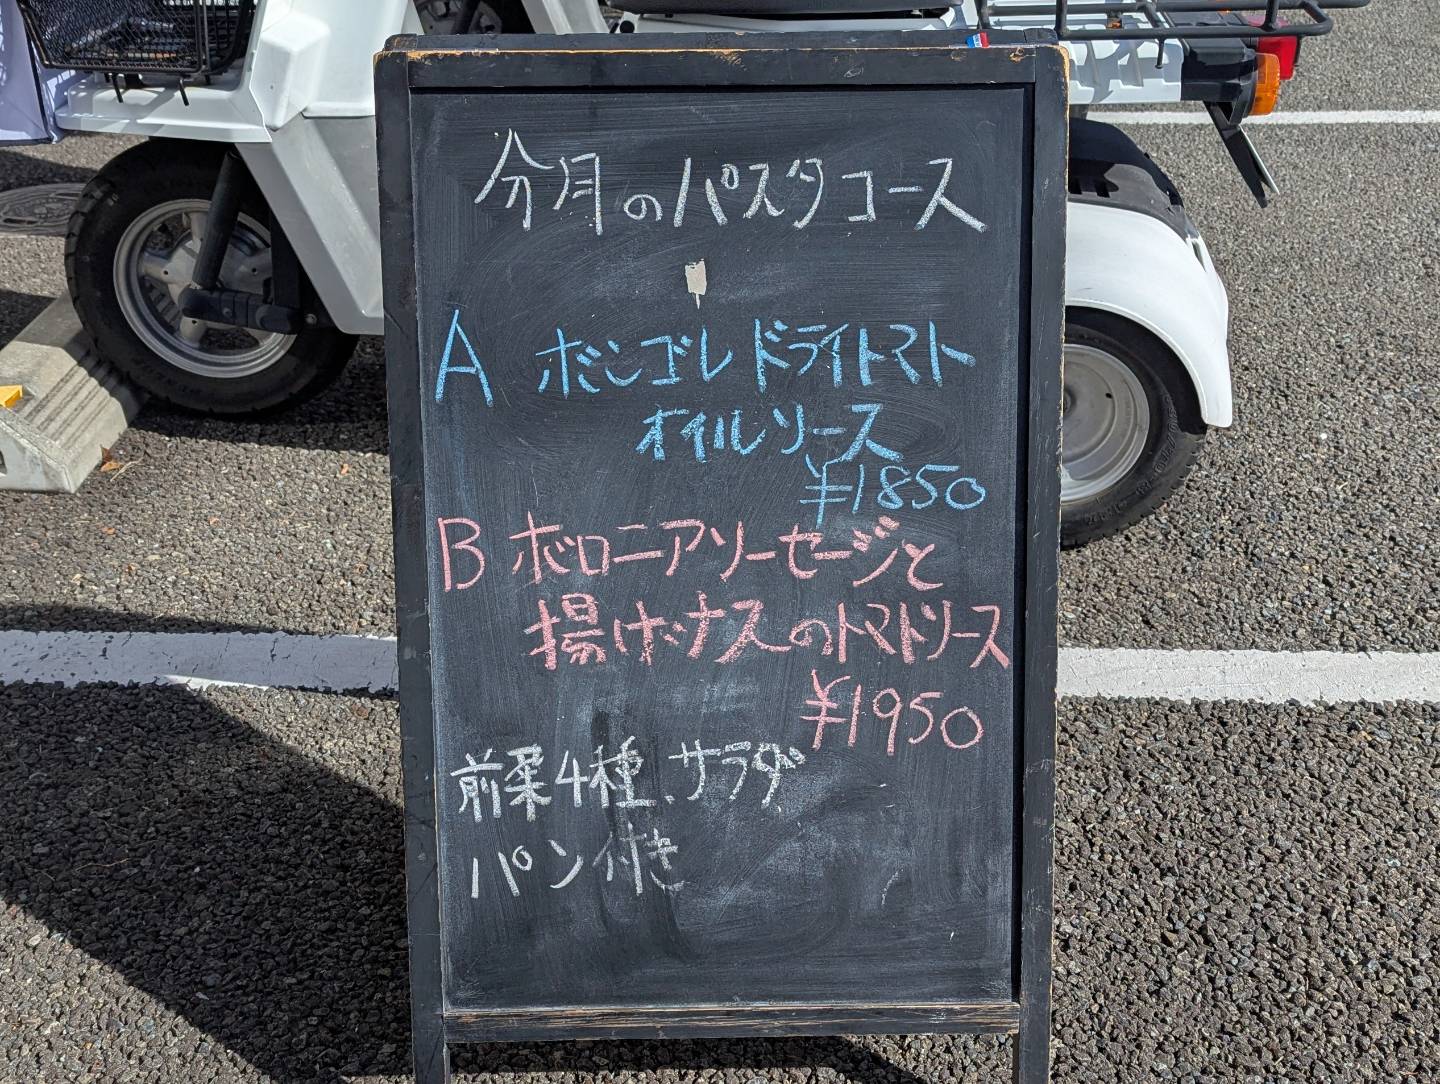 今月のパスタコース
A ボンゴレ ドライトマト
オイルソース
¥1850
B ボロニアソーセージと
揚げナスのトマトソース
¥1950
前菜4種、サラダ
パン付き